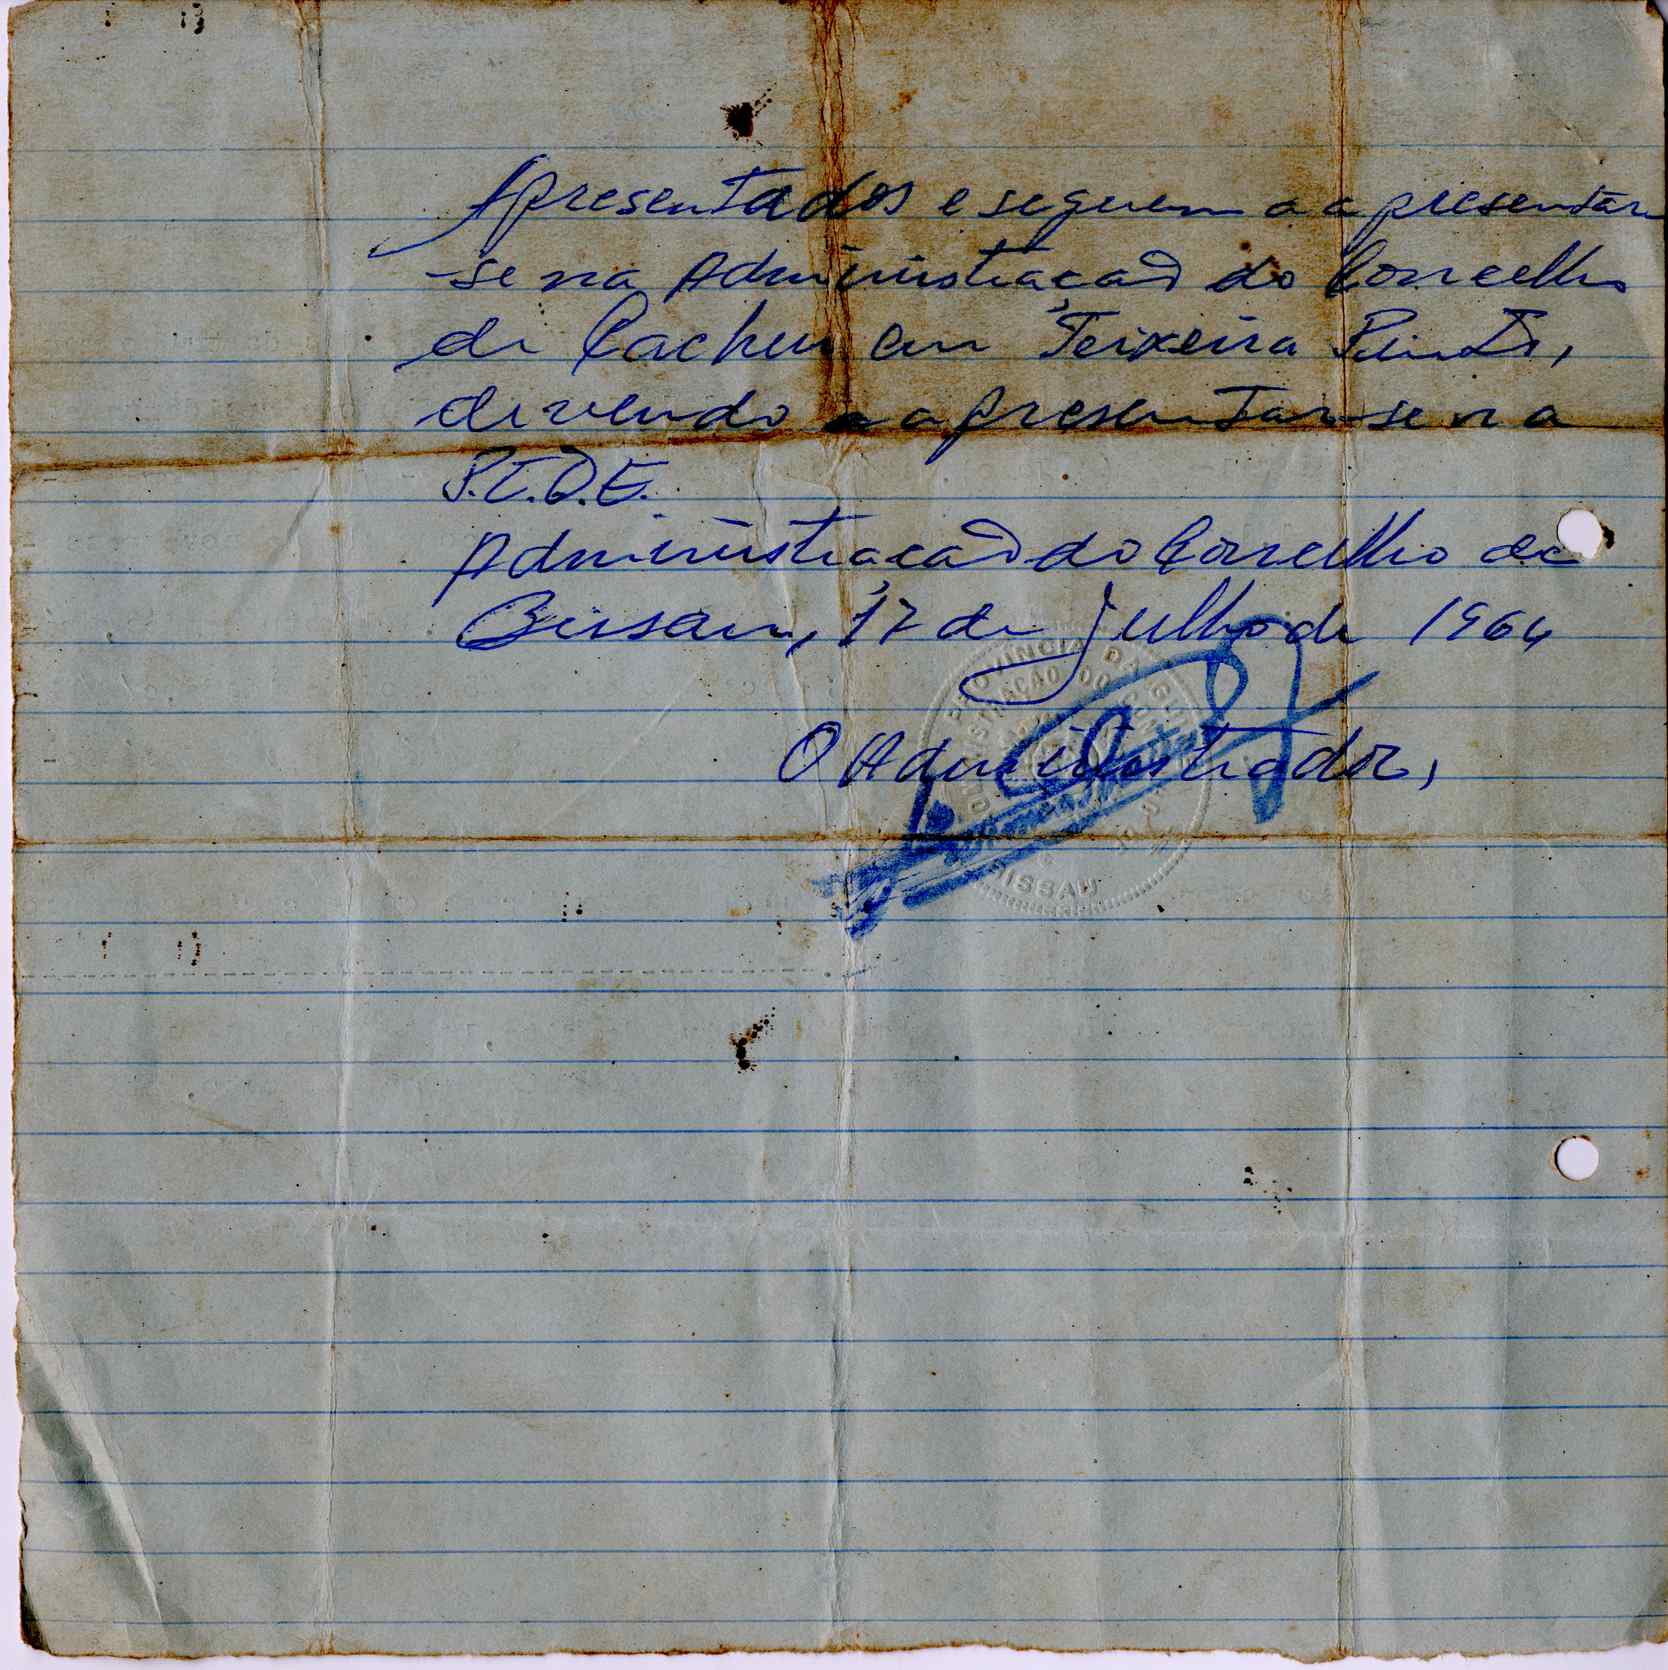 Apresentados e seguem a apresentar
-se na Administração do Concelho
de Cacheu em Teixeira Pinto,
devendo apresentar-se na
P.I.D.E.
Administração do Concelho de
Bissau, 17 de Julho de 1964
O Administrador,
PROVINCIA DA GUI
BISSAU